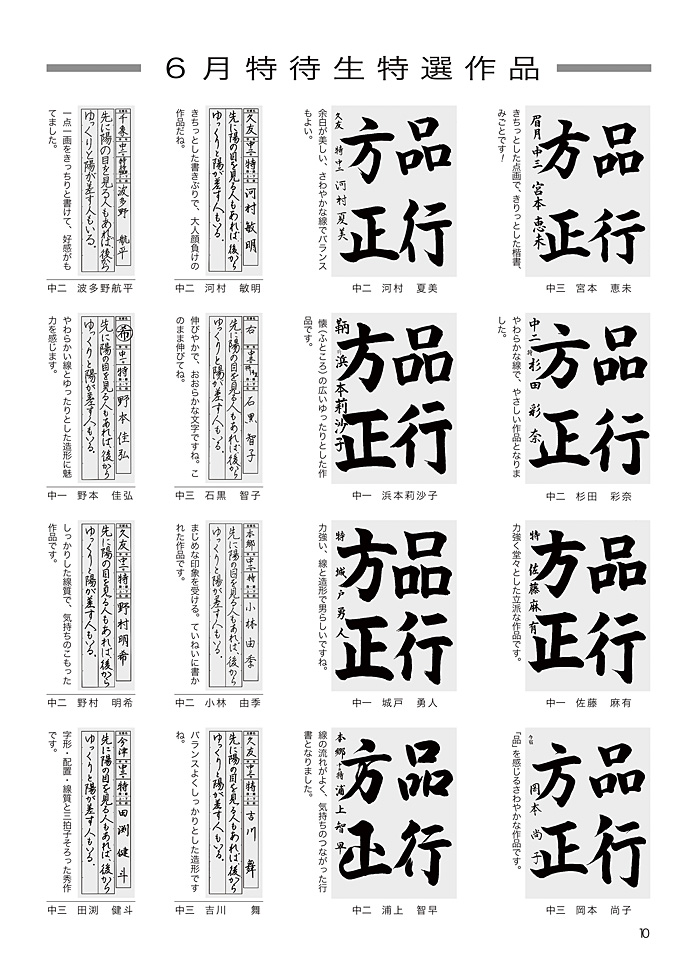 6月特待生特選作品
品行
方正
眉月 中三 宮本 恵未
きちっとした点画で、きりっとした楷書、
みごとです!
中三 宮本 恵未
品行
方正
久友 特 中二 河村 夏美
余白が美しい、さわやかな線でバランス
もよい。
中二 河村 夏美
久友 中三 特 河村 敏明
先に陽の目を見る人もあれば、後から
ゆっくりと陽が差す人もいる。
きちっとした書きぶりで、大人顔負けの
作品だね。
中二 河村 敏明
千象 中二 特 波多野 航平
先に陽の目を見る人もあれば、後から
ゆっくりと陽が差す人もいる。
一点一画をきっちりと書けて、好感がも
てました。
中二 波多野航平
品行
方正
中二 特 杉田 彩奈
やわらかな線で、やさしい作品となりま
した。
中二 杉田 彩奈
品行
方正
鞆 浜本莉沙子
懐(ふところ)の広いゆったりとした作
品です。
中一 浜本莉沙子
石黒 智子
先に陽の目を見る人もあれば、後から
ゆっくりと陽が差す人もいる。
伸びやかで、おおらかな文字ですね。こ
のまま伸びてね。
中三 石黒 智子
希 中一 特 野本 佳弘
先に陽の目を見る人もあれば、後から
ゆっくりと陽が差す人もいる。
やわらかい線とゆったりとした造形に魅
力を感じます。
中一 野本 佳弘
品行
方正
特 佐藤麻有
力強く堂々とした立派な作品です。
中一 佐藤 麻有
品行
方正
特 城戸勇人
力強い、線と造形で男らしいですね。
中一 城戸 勇人
本郷 中二 特 小林 由季
先に陽の目を見る人もあれば、後から
ゆっくりと陽が差す人もいる。
まじめな印象を受ける。ていねいに書か
れた作品です。
中二 小林 由季
久友 中二 特 野村明希
先に陽の目を見る人もあれば、後から
ゆっくりと陽が差す人もいる。
しっかりした線質で、気持ちのこもった
作品です。
中二 野村 明希
品行
方正
今宿 岡本 尚子
「品」を感じるさわやかな作品です。
中三 岡本 尚子
品行
方正
本郷 中二 特 浦上智早
線の流れがよく、気持ちのつながった行
書となりました。
中二 浦上 智早
久友 中三 特 吉川 舞
先に陽の目を見る人もあれば、後から
ゆっくりと陽が差す人もいる。
バランスよくしっかりとした造形です
ね。
中三 吉川 舞
今津 中三 特 田渕 健斗
先に陽の目を見る人もあれば、後から
ゆっくりと陽が差す人もいる。
字形・配置・線質と三拍子そろった秀作
です。
中三 田渕 健斗
10